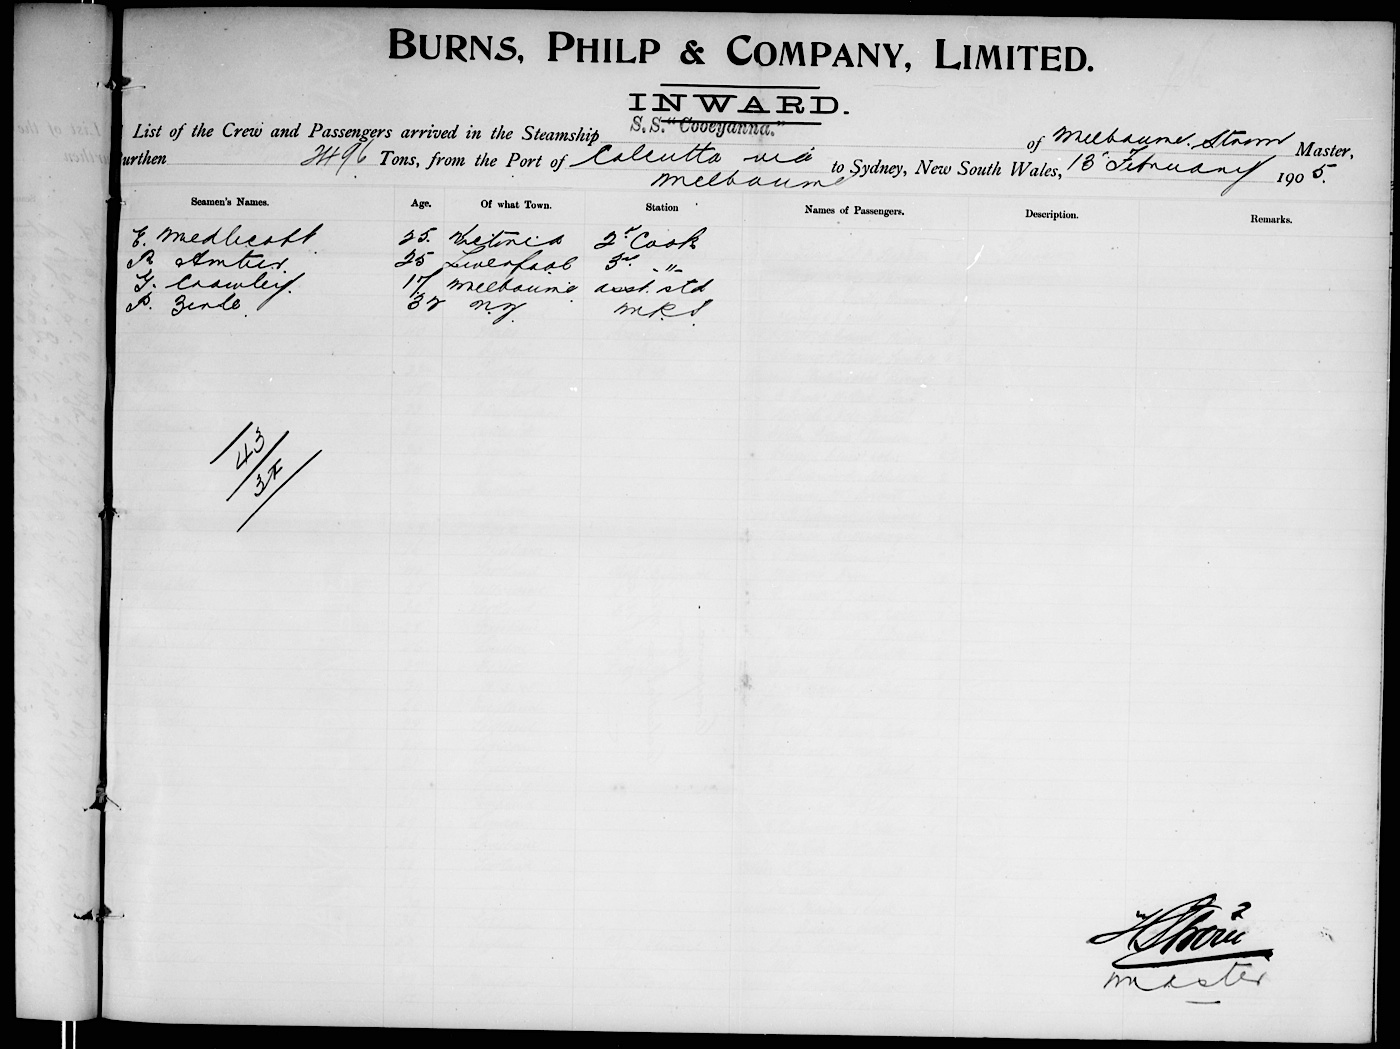 BURNS, PHILP & COMPANY, LIMITED.
INWARD.
List of the Crew and Passengers arrived in the Steamship S.S. "Cooeyanna." of Melbourne. Strom Master,
urthen 2496 Tons, from the Port of Calcutta via Melbourne to Sydney, New South Wales, 13 February 1905.
Seamen's Names. Age. Of what Town. Station Names of Passengers. Description. Remarks.
E. Medlicott 25. Victoria 2d Cook
R Amter. 25 Liverpool 3rd -"-
G. Crawley. 17 Melbourne asst. std
P. Zende. 37 N.Y. M.R.S.
43
37
H Strom
Master